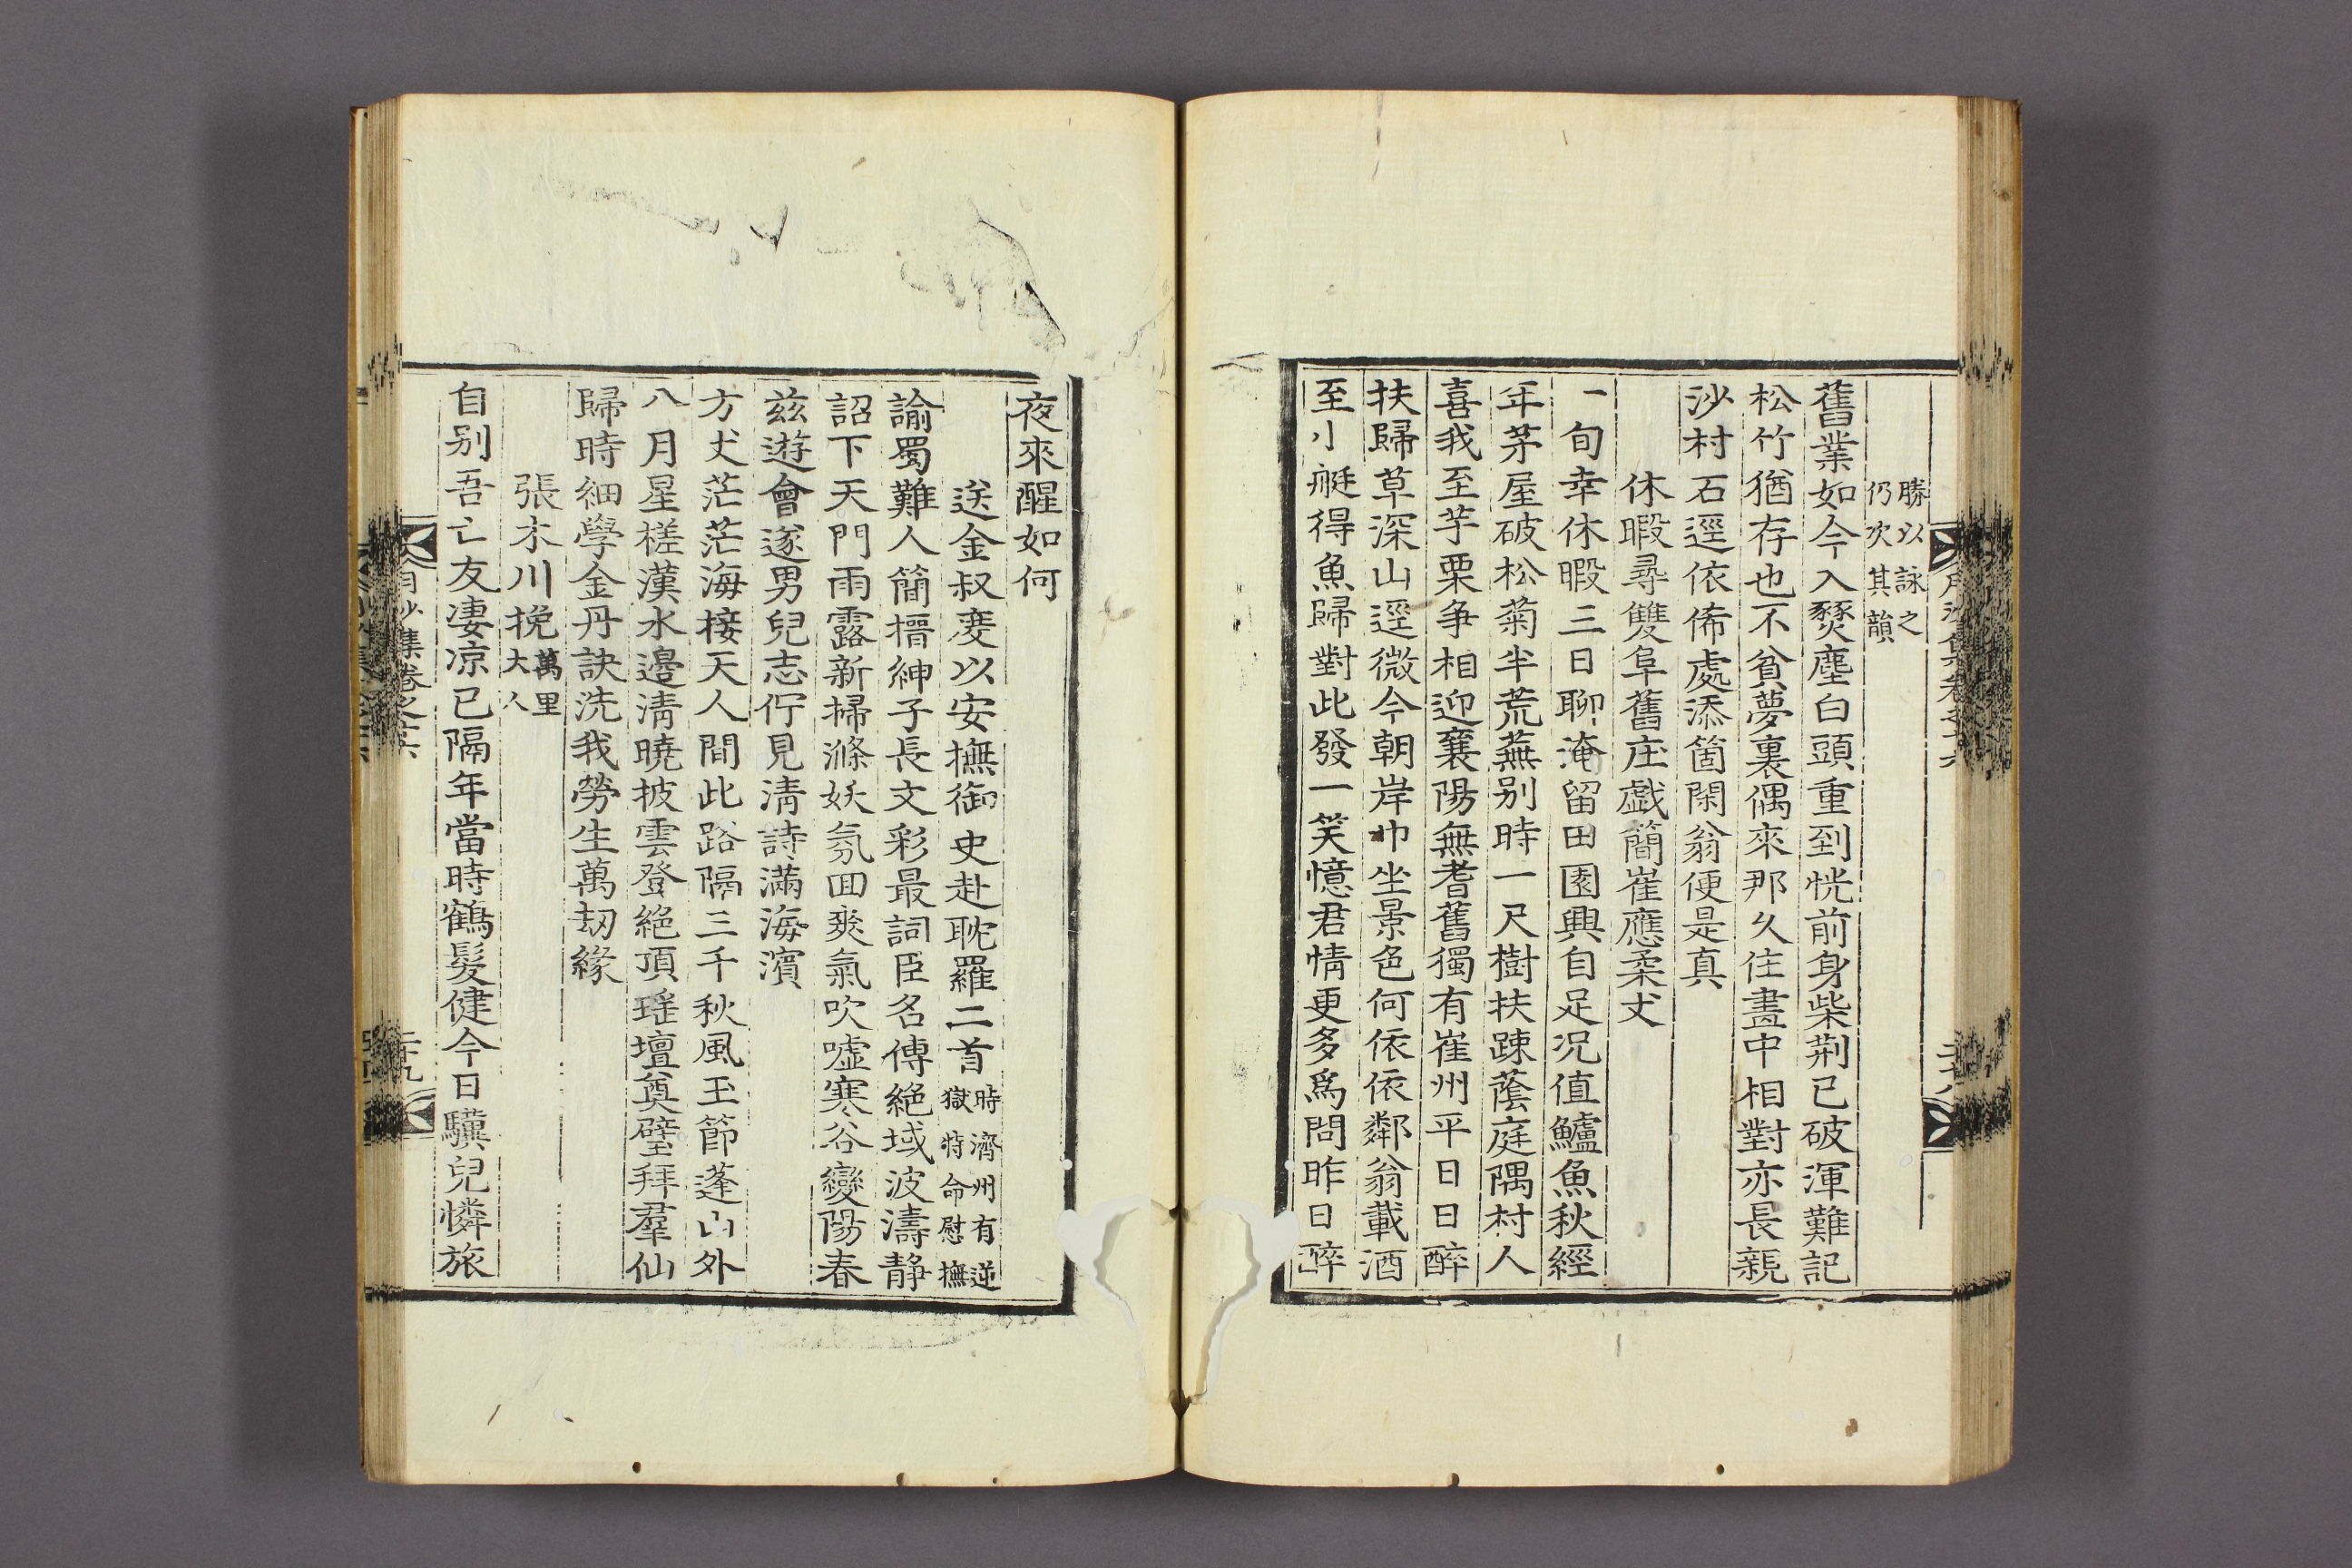 月沙集卷之十六
二十八
勝以詠之
仍次其韻
舊業如今入燹塵白頭重到恍前身柴荆已破渾難記
松竹猶存也不貧夢裏偶來那久住畵中相對亦長親
沙村石逕依俙處添箇閑翁便是真
休暇尋雙阜舊庄戱簡崔應柔丈
一旬幸休暇三日聊淹留田園興自足况值鱸魚秋經
年茅屋破松菊半荒蕪别時一尺樹扶踈蔭庭隅村人
喜我至芋栗争相迎襄陽無耆舊獨有崔州平日日醉
扶歸草深山逕微今朝岸巾坐景色何依依鄰翁載酒
至小艇得魚歸對此發一笑憶君情更多爲問昨日醉
夜來醒如何
送金叔度以安撫御史赴耽羅二首
時濟州有逆
獄特命慰撫
諭蜀難人簡搢紳子長文彩最詞臣名傳絶域波濤静
詔下天門雨露新掃滌妖氛回爽氣吹噓寒谷變陽春
玆遊會遂男兒志佇見淸詩滿海濱
方丈茫茫海接天人間此路隔三千秋風玉節蓬山外
八月星槎漢水邊淸曉披雲登絶頂瑶壇奠璧拜羣仙
歸時細學金丹訣洗我勞生萬刼緣
張木川挽
萬里
大人
自别吾亡友凄凉已隔年當時鶴髮健今日驥兒憐旅
月沙集卷之十六
二十九